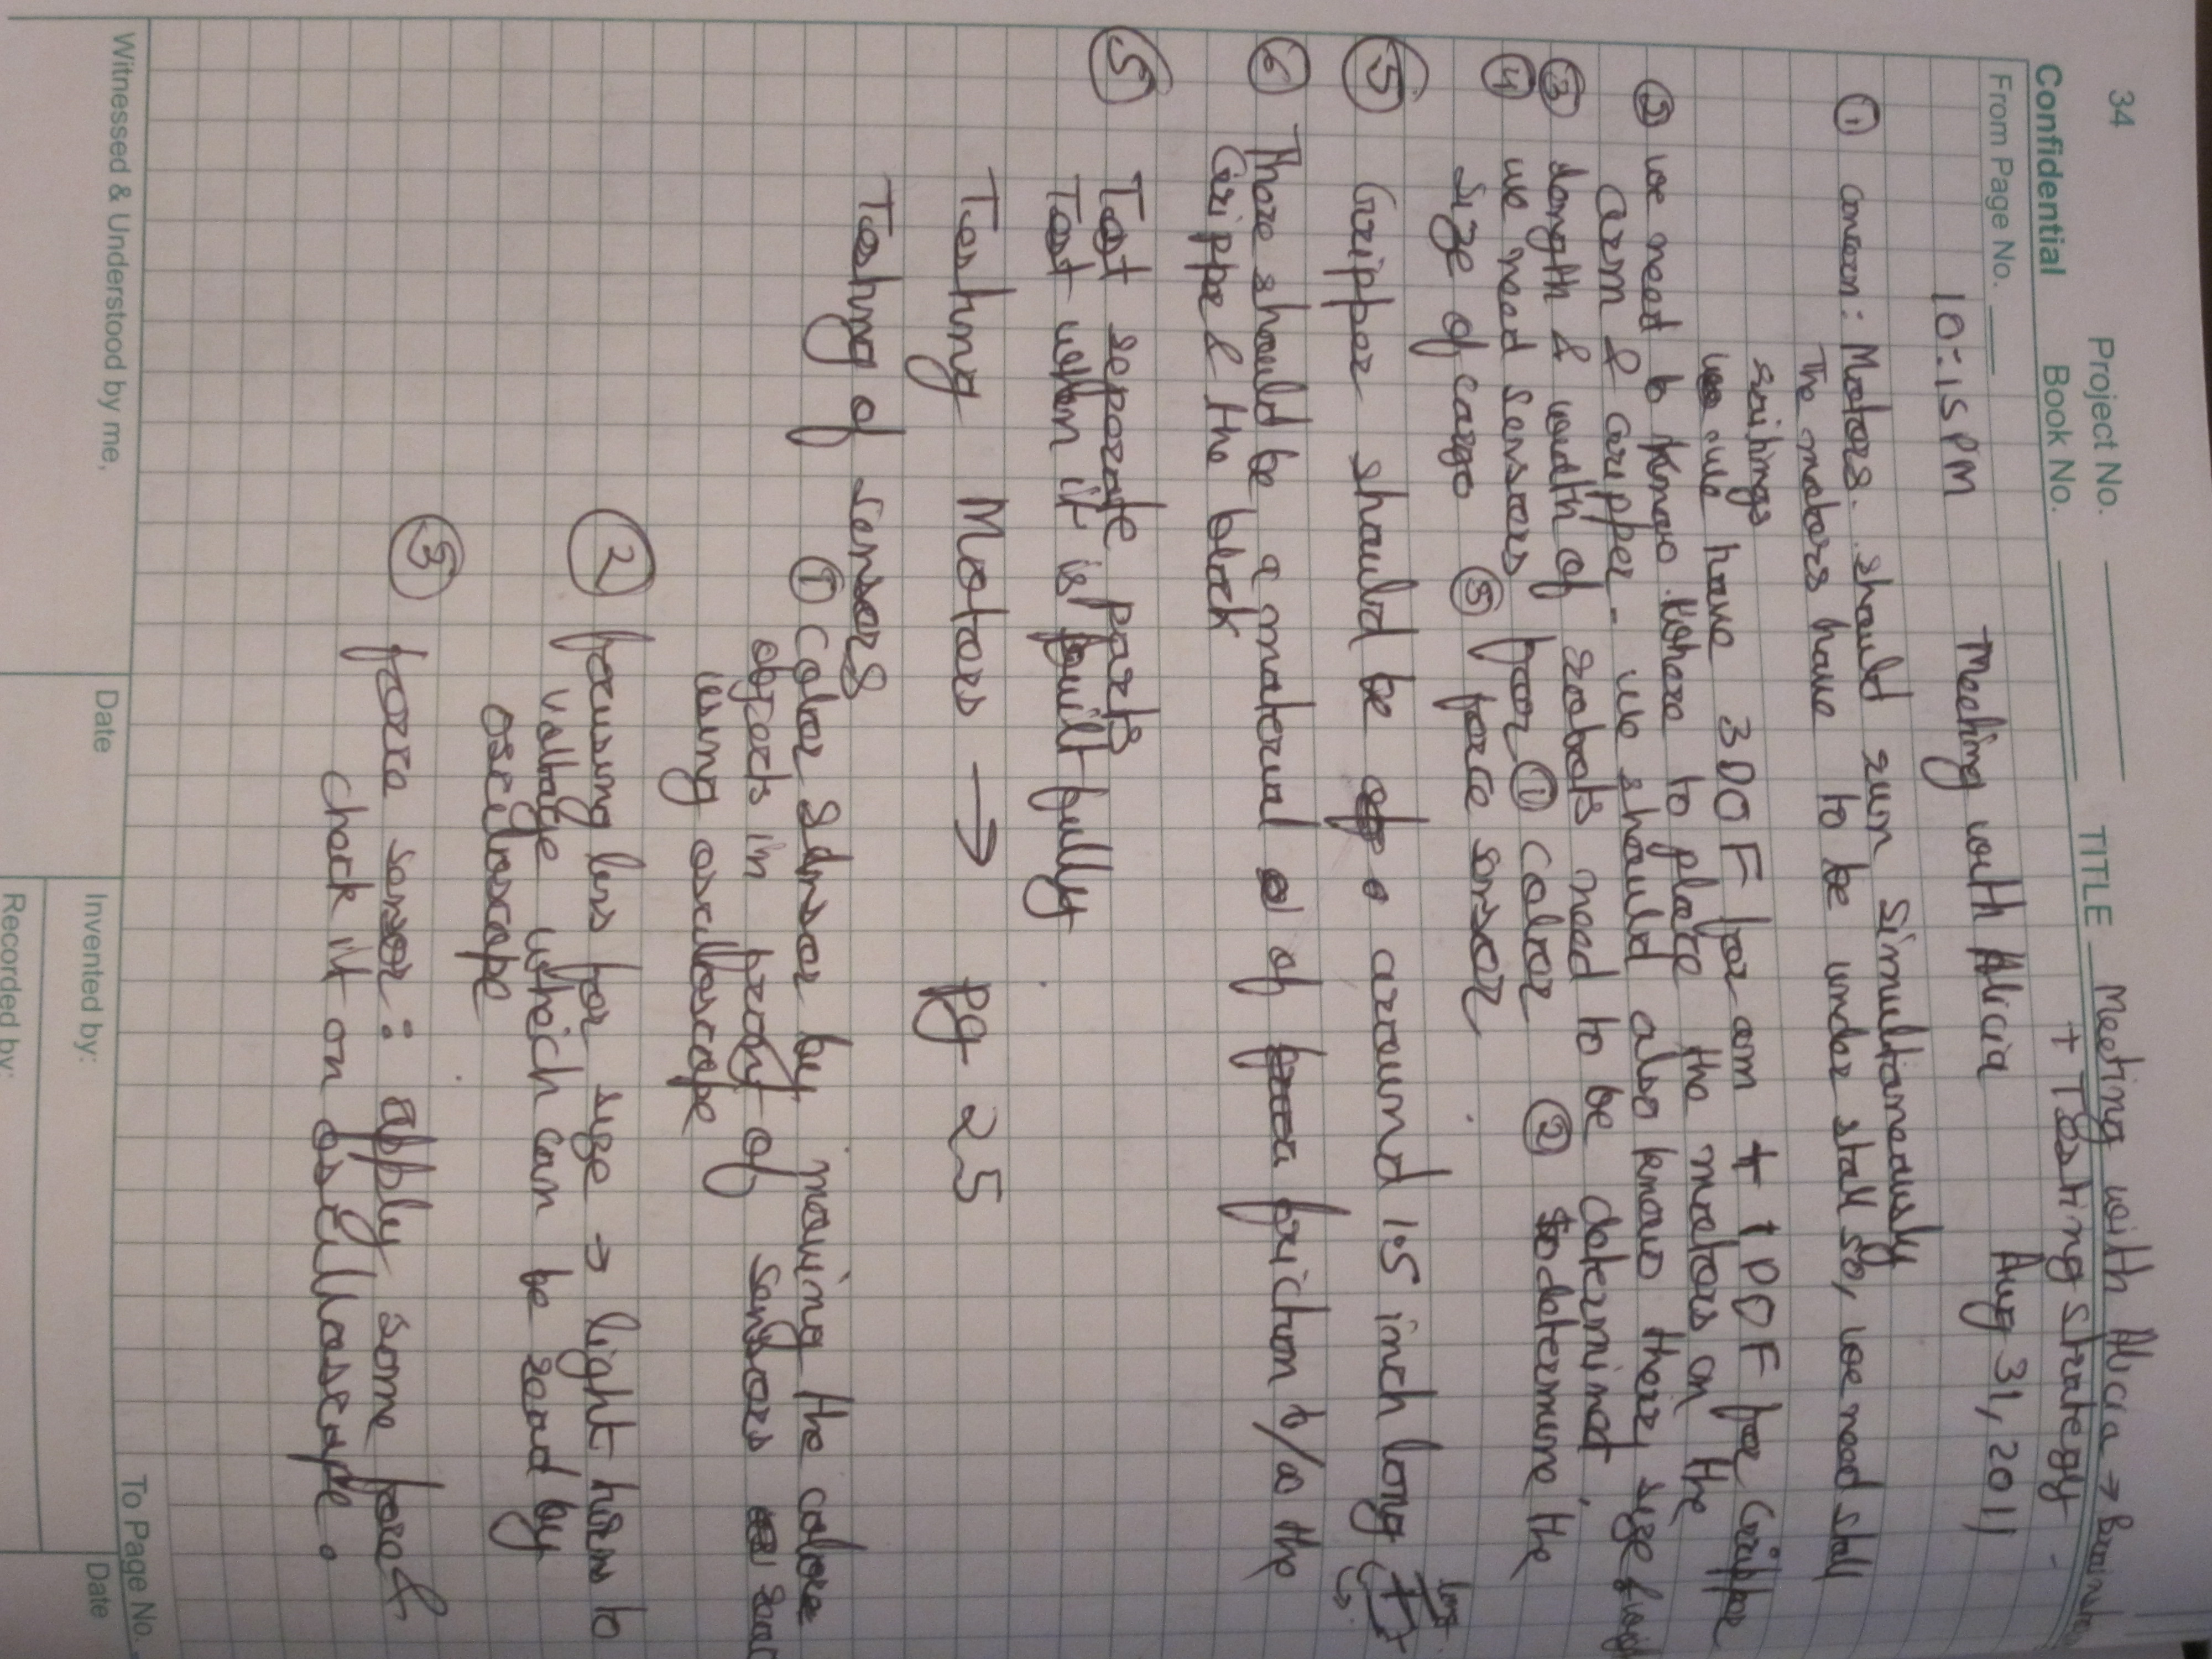 34
Project No.
TITLE Meeting with Alicia →
Confidential Book No.
+ Testing strategy
From Page No.
10:15 PM Meeting with Alicia Aug 31, 2011
① concern: Motors should run simultaneously
The motors have to be under stall so, we need stall
we have 3DOF for arm + 1DOF for Gripper
② we need to know where to place the motors on the
arm & Gripper. we should also know their size &
③ length & width of robots need to be determined
④ we need sensors for ① color ② to determine the
size of cargo ③ force sensor
⑤ Gripper should be around 1.5 inch long
long
⑥ There should be a material of friction b/w the
Gripper & the block
⑤ Test seperate parts
Test when it is built fully
Testing Motors → Pg 25
Testing of sensors
① Color sensor by moving the color
objects in front of sensors
using oscilloscope
② focusing lens for size → light turns to
voltage which can be read by
oscilloscope
③ force sensor: apply some force &
check it on oscilloscope.
Witnessed & Understood by me,
Date
Invented by:
Date
Recorded by:
To Page No.